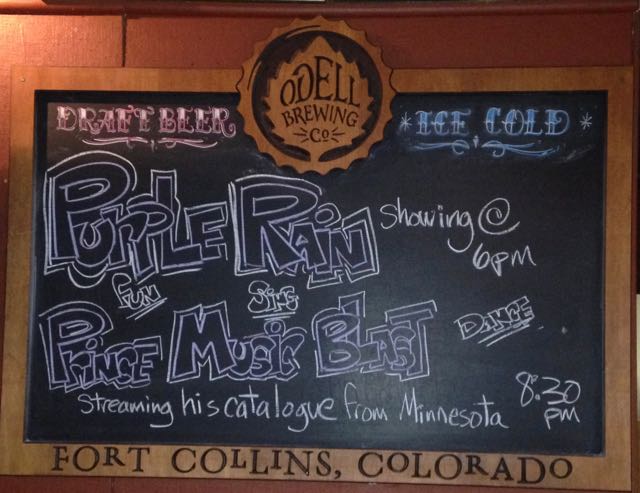 ODELL
BREWING
Co
DRAFT BEER
* ICE COLD *
PURPLE RAIN
showing @
6pm
FUN
SING
DANCE
PRINCE MUSIC BLAST
Streaming his catalogue from Minnesota
8:30
PM
FORT COLLINS, COLORADO